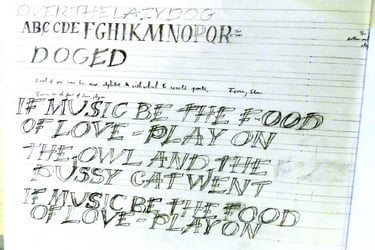 OVERTHELAZYDOG
ABCCDEFGHIKMNOPQR
DOGED
IF MUSIC BE THE FOOD
OF LOVE - PLAY ON
THE OWL AND THE
PUSSY CAT WENT
IF MUSIC BE THE FOOD
OF LOVE - PLAY ON